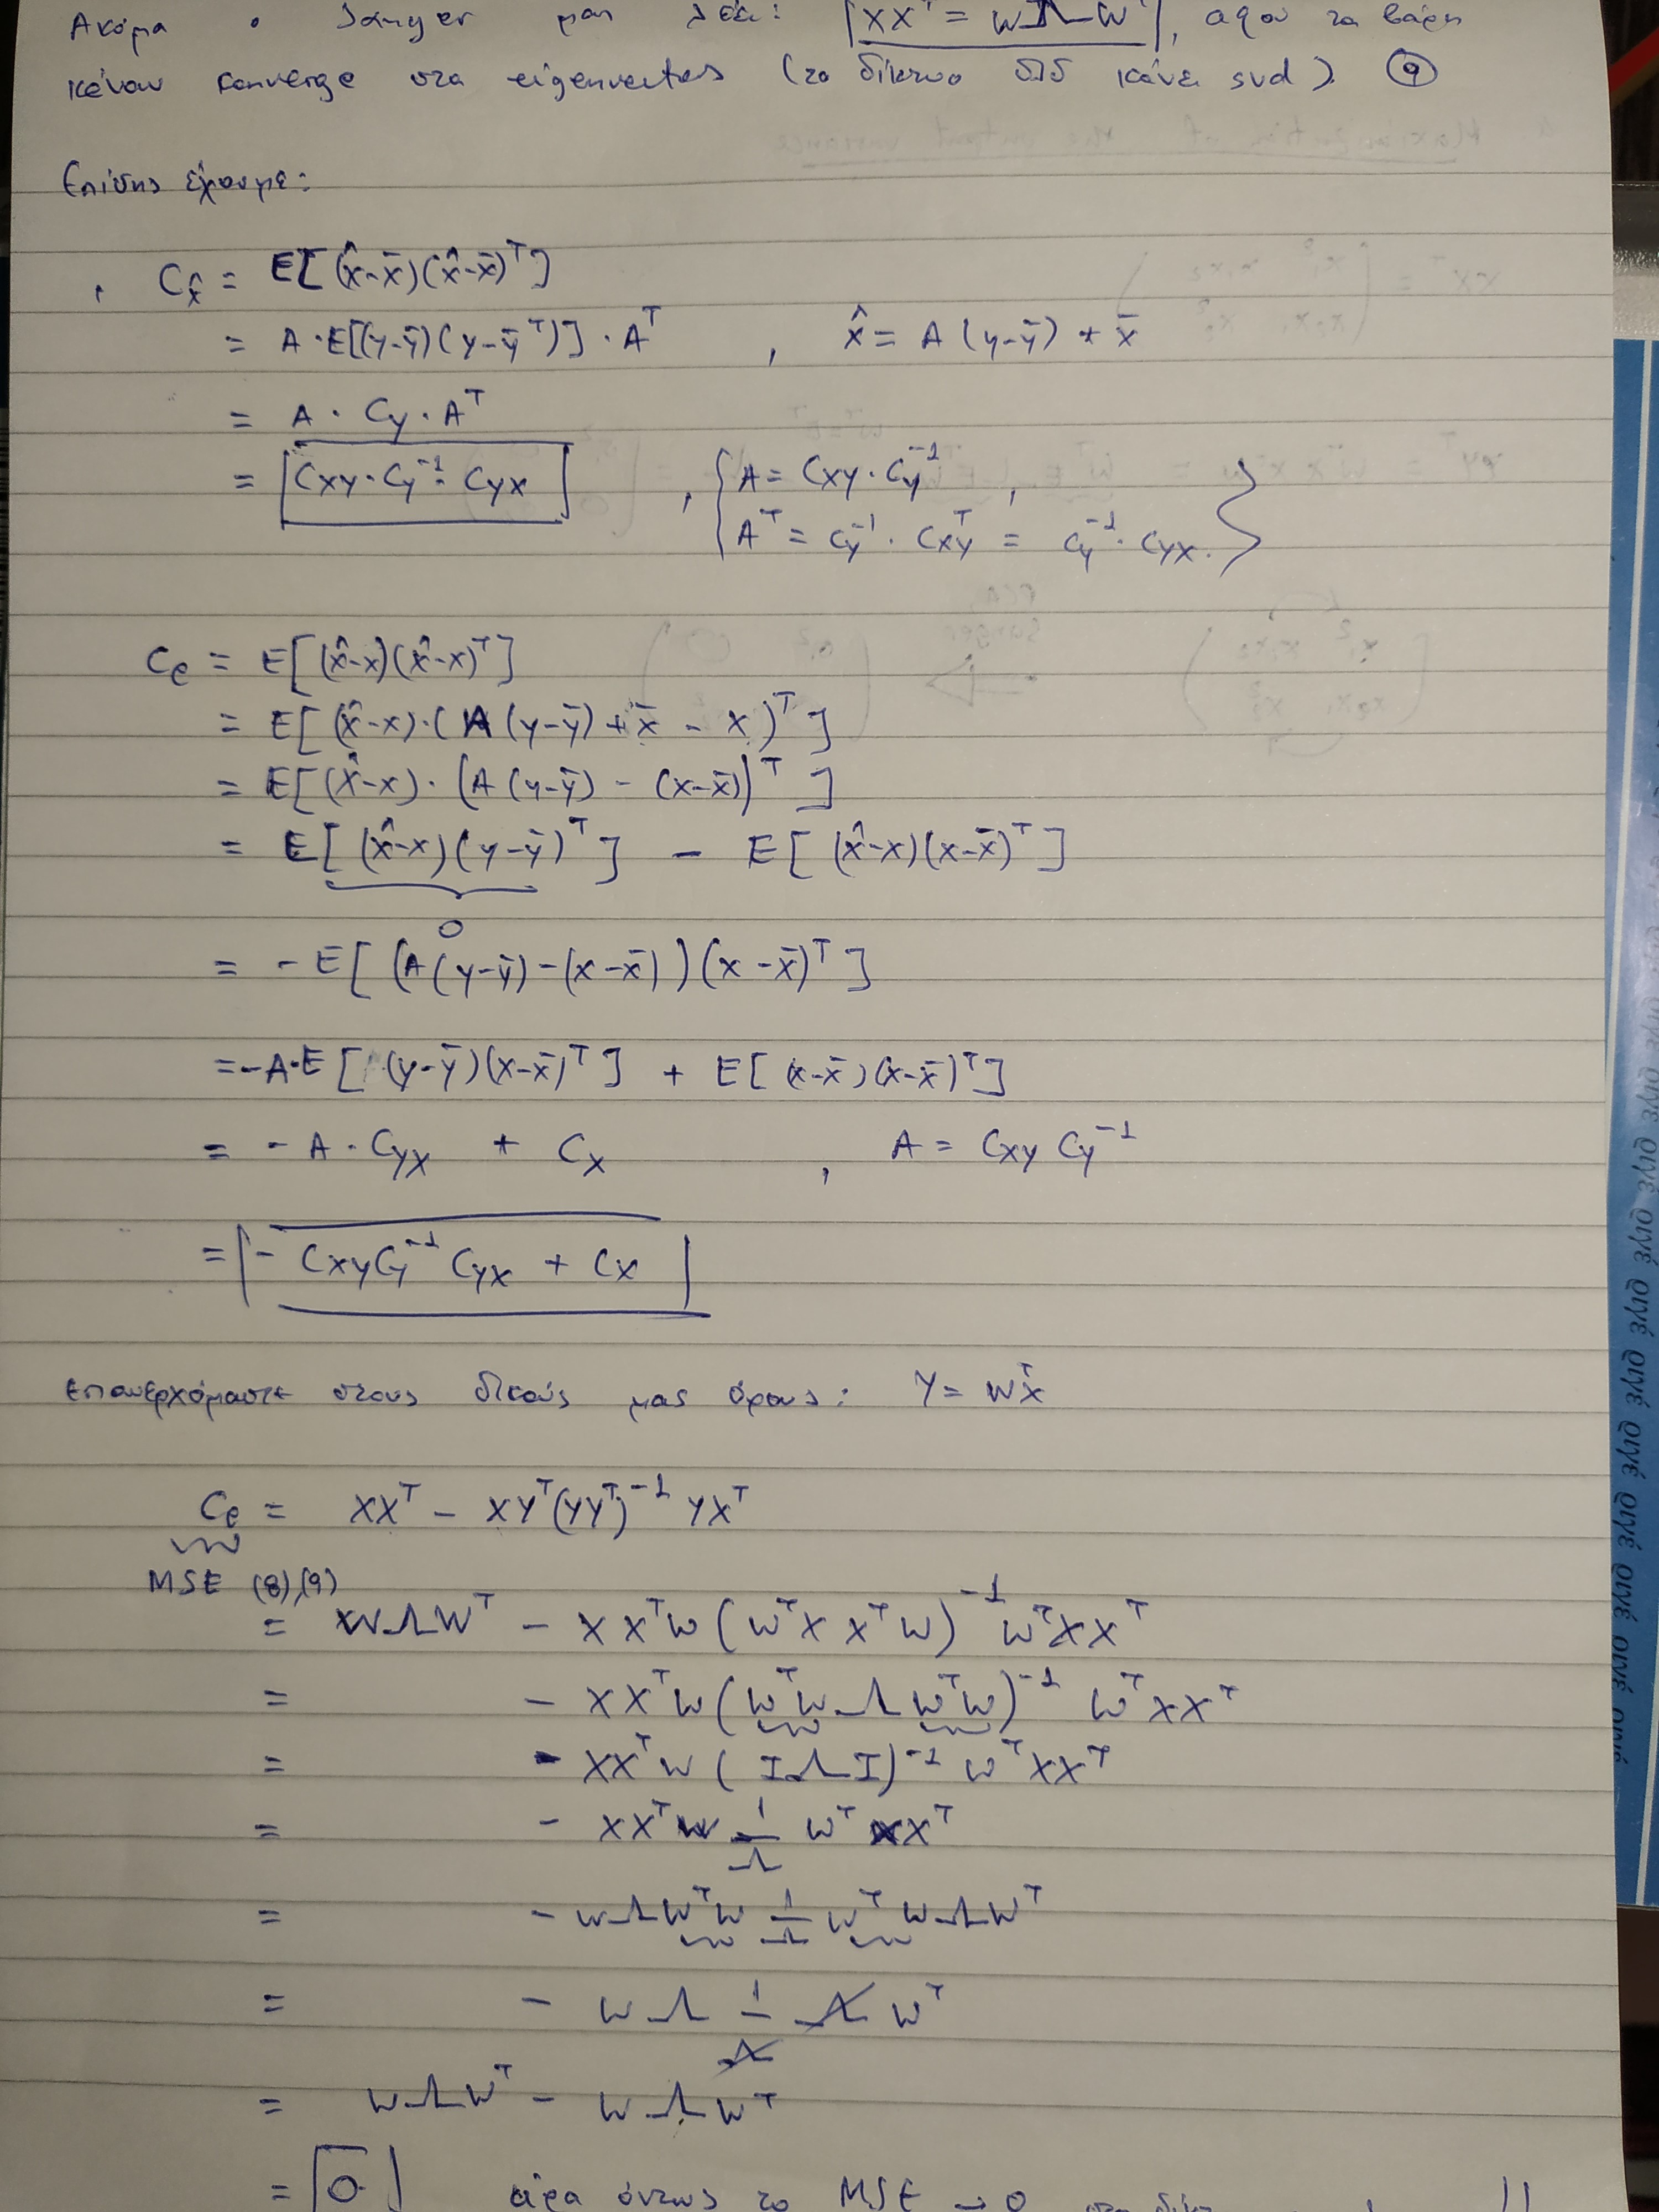 Ακόμα ο Sanger μας λέει: XXᵀ = WΛWᵀ, αφού τα βάρη
κάνουν converge στα eigenvectors (το δίκτυο μας κάνει svd). ⑨
Επίσης έχουμε:
, Cx̂ = E[(x̂-x̄)(x̂-x̄)ᵀ]
= A·E[(y-ȳ)(y-ȳᵀ)]·Aᵀ , x̂ = A(y-ȳ) + x̄
= A · Cy · Aᵀ
= Cxy·Cy⁻¹·Cyx , { A = Cxy·Cy⁻¹ ,
Aᵀ = Cy⁻¹ · Cxyᵀ = Cy⁻¹· Cyx. }
Ce = E[(x̂-x)(x̂-x)ᵀ]
= E[(x̂-x)·(A(y-ȳ)+x̄ - x)ᵀ]
= E[(x̂-x)·(A(y-ȳ) - (x-x̄))ᵀ]
= E[(x̂-x)(y-ȳ)ᵀ] - E[(x̂-x)(x-x̄)ᵀ]
0
= - E[(A(y-ȳ)-(x-x̄))(x-x̄)ᵀ]
= -A·E[(y-ȳ)(x-x̄)ᵀ] + E[(x-x̄)(x-x̄)ᵀ]
= - A · Cyx + Cx , A = Cxy Cy⁻¹
= - CxyCy⁻¹ Cyx + Cx
Επανερχόμαστε στους δικούς μας όρους: Y = WᵀX
Ce = XXᵀ - XYᵀ(YYᵀ)⁻¹ YXᵀ
MSE (8),(9)
= WΛWᵀ - XXᵀW(WᵀXXᵀW)⁻¹WᵀXXᵀ
= - XXᵀW(WᵀWΛWᵀW)⁻¹ WᵀXXᵀ
= - XXᵀW(IΛI)⁻¹ WᵀXXᵀ
= - XXᵀW 1/Λ WᵀXXᵀ
= - WΛWᵀW 1/Λ WᵀWΛWᵀ
= - WΛ 1/Λ Λ Wᵀ
= WΛWᵀ - WΛWᵀ
= 0 άρα όντως το MSE → 0